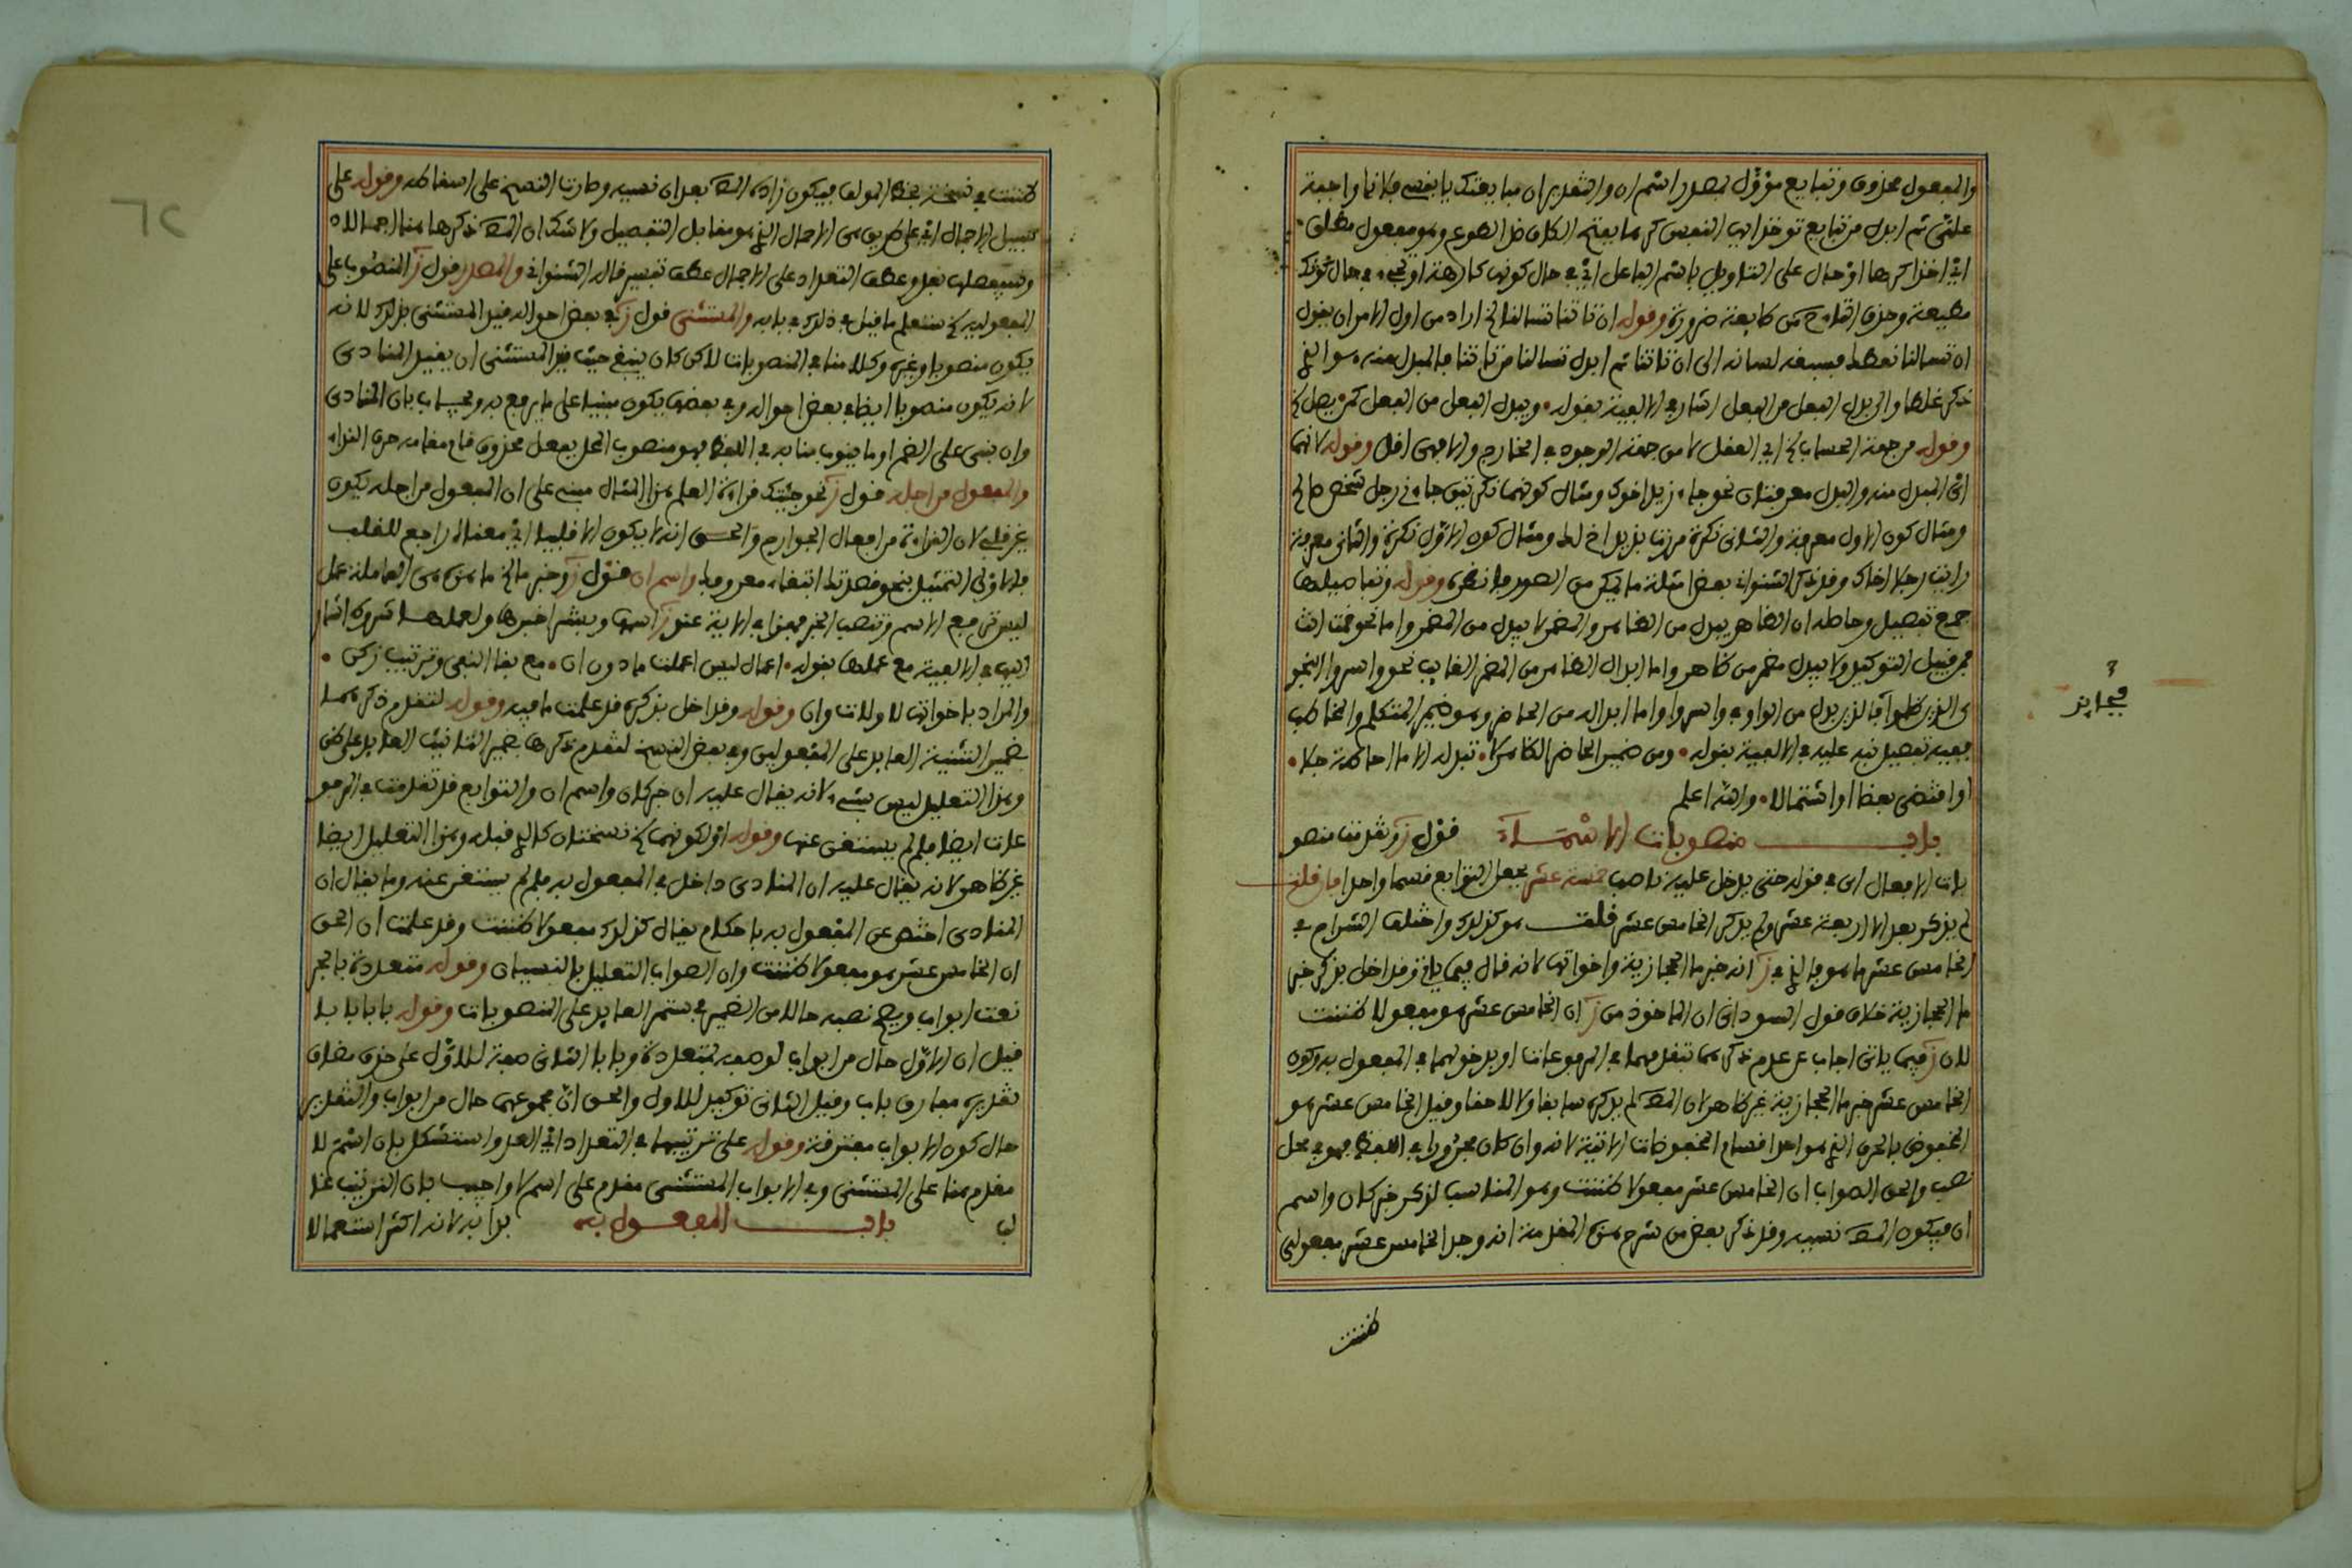 والمفعول محذوف وتبايع مؤول بمصدر اسم ان والتقدير ان مبايعتك يا نفسي فلانا واجبة
علي ثم ابدل من تبايع توخذ اي النفس كرها بفتح الكاف ضد الطوع وهو مفعول مطلق
اي اخذا كرها او حال على التاويل باسم الفاعل اي في حال كونها كارهة او تجيء في حال كونك
ان تسالنا فغلط فسبقه لسانه الى ان تاتنا ثم ابدل تسالنا من تاتنا فالمبدل منه هو الذي
ذكر غلطا والى بدل الفعل من الفعل اشار في الالفية بقوله ويبدل الفعل من الفعل كمن يصل الخ
وقوله من جهة الحساب الخ اي العقل لا من جهة الوجود في الخارج والا فهي اقل وقوله لانهما
اي المبدل منه والبدل معرفتان نحو جاء زيد اخوك ومثال كونهما نكرتين جاءني رجل شخص صالح
ومثال كون الاول معرفة والثاني نكرة مررت بزيد اخ لك ومثال كون الاول نكرة والثاني معرفة
رايت رجلا اخاك وقد ذكر الشنواني بعض امثلة ما ذكر من الصور فانظره وقوله وتفاصيلها
جمع تفصيل وحاصله ان الظاهر يبدل من الظاهر والمضمر لا يبدل من المضمر واما نحو قمت انت
فمن قبيل التوكيد ولا يبدل مضمر من ظاهر واما ابدال الظاهر من المضمر الغايب نحو واسروا النجوى
الذين ظلموا فالذين بدل من الواو في واسروا واما ابداله من الحاضر وهو ضمير المتكلم والمخاطب
ففيه تفصيل نبه عليه في الالفية بقوله ومن ضمير الحاضر الظاهر لا تبدله الا ما احاطة جلا
او اقتضى بعضا او اشتمالا والله اعلم
باب منصوبات الاسماء قول ز وتقدمت منصو
بات الافعال اي في قوله حتى يدخل عليه ناصب خمسة عشر بجعل التوابع قسما واحدا فان قلت
لم يذكر بعد الا اربعة عشر ولم يذكر الخامس عشر قلت هو كذلك واختلف الشراح في
الخامس عشر ما هو فالذي في ز انه خبر ما الحجازية واخواتها لانه قال فيما ياتي وقد اخل بذكر خبر
ما الحجازية خلاف قول السوداني ان الماخوذ من ز ان الخامس عشر هو مفعولا ظننت
لان ز فيما ياتي اجاب عن عدم ذكرهما بتقدمهما في المرفوعات او بدخولهما في المفعول به وكون
الخامس عشر خبر ما الحجازية غير ظاهر لان المص لم يذكره سابقا ولا لاحقا وقيل الخامس عشر هو
المخفوض بالحرف الذي هو احد اقسام المخفوضات الاتية لانه وان كان مجرورا في اللفظ فهو في محل
نصب والحق الصواب ان الخامس عشر مفعولا ظننت وهو المناسب لذكر خبر كان واسم
ان فيكون المص نسيه وقد ذكر بعض من شرح هذه المقدمة انه وجد الخامس عشر مفعولي
ظننت
فجايز
ظننت في نسخة بخط المولف فيكون زاده المص بعد ان نسيه وصارت النسخ على اسقاطه وقوله على
سبيل الاجمال اي على طريق هي الاجمال الذي هو مقابل التفصيل ولا شك ان المص ذكرها هنا اجمالا
وسيفصلها بعد وعطف التعداد على الاجمال عطف تفسير قاله الشنواني والمصدر قول ز المنصوب على
المفعولية الخ ستعلم ما قيل في ذلك في بابه والمستثنى قول ز في بعض احواله قيد المستثنى بذلك لانه
يكون منصوبا وغيره وكلامنا في المنصوبات لاكن كان ينبغي حيث قيد المستثنى ان يقيد المنادى
لانه يكون منصوبا ايضا في بعض احواله وفي بعضها يكون مبنيا على ما يرفع به ويجاب بان المنادى
وان بني على الضم او ما ينوب منابه في اللفظ فهو منصوب المحل بفعل محذوف قام مقامه حرف النداء
والمفعول من اجله قول ز نحو جئتك قراءة العلم هذا المثال مبني على ان المفعول من اجله يكون
غير قلبي لان القراءة من افعال الجوارح والحق انه لا يكون الا قلبيا اي معناه راجع للقلب
فالاولى التمثيل بنحو قصدتك ابتغاء معروفك واسم ان قول ز وخبر ما الخ ما هذه هي العاملة عمل
ليس ترفع الاسم وتنصب الخبر فهذا في الاية عند ز اسمها وبشرا خبرها ولعملها شروط اشار
اليها في الالفية مع عملها بقوله اعمال ليس اعملت ما دون ان مع بقا النفي وترتيب زكن
والمراد باخواتها لا ولات وان وقوله وقد اخل بذكره قد علمت ما فيه وقوله لتقدم ذكرهما
بضمير التثنية العايد على المفعولين وفي بعض النسخ لتقدم ذكرها بضمير التانيث العايد على ظن
وهذا التعليل ليس بشيء لانه يقال عليه ان خبر كان واسم ان والتوابع قد تقدمت في المرفو
عات ايضا فلم لم يستغن عنها وقوله او لكونهما الخ نسختان كالذي قبله وهذا التعليل ايضا
غير ظاهر لانه يقال عليه ان المنادى داخل في المفعول به فلم لم يستغن عنه وما يقال ان
المنادى اختص عن المفعول به باحكام يقال كذلك مفعولا ظننت وقد علمت ان الحق
ان الخامس عشر هو مفعولا ظننت وان الصواب التعليل بالنسيان وقوله متعددة بالجر
نعت ابواب ويصح نصبه حالا من الضمير المستتر العايد على المنصوبات وقوله بابا بابا
قيل ان الاول حال من ابواب لوصفه بمتعددة وبابا الثاني صفة للاول على حذف مضاف
تقديره مفارق باب وقيل الثاني توكيد للاول والحق ان مجموعهما حال من ابواب والتقدير
حال كون الابواب مفترقة وقوله على ترتيبها في التعداد اي العد واستشكل بان اسم لا
مقدم هنا على المستثنى وفي الابواب المستثنى مقدم على اسم لا واجيب بان الترتيب غا
لب باب المفعول به بدا به لانه اكثر استعمالا